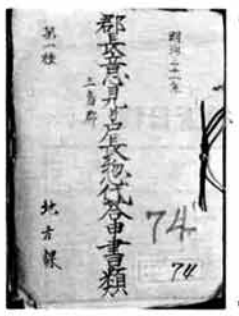 明治二十一年
郡長意見幷戸長惣代答申書類
三島郡
第一種
地方課
74
74